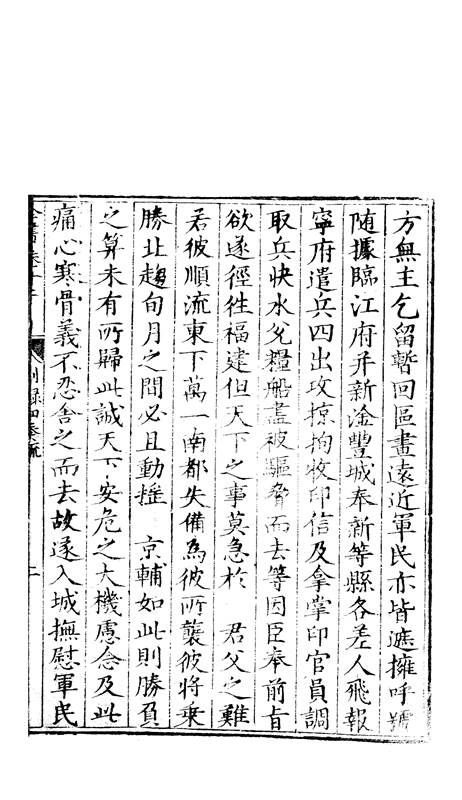 方無主乞留暫回區畫遠近軍民亦皆遮擁呼號
随據臨江府并新淦豐城奉新等縣各差人飛報
寧府遣兵四出攻掠拘收印信及拿掌印官員調
取兵快水兌糧船盡被驅脅而去等因臣奉前旨
欲遂徑徃福建但天下之事莫急於　君父之難
若彼順流東下萬一南都失備為彼所襲彼將乗
勝北趨旬月之間必且動揺　京輔如此則勝負
之算未有所歸此誠天下安危之大機慮念及此
痛心寒骨義不忍舍之而去故遂入城撫慰軍民
别録四奏疏
二